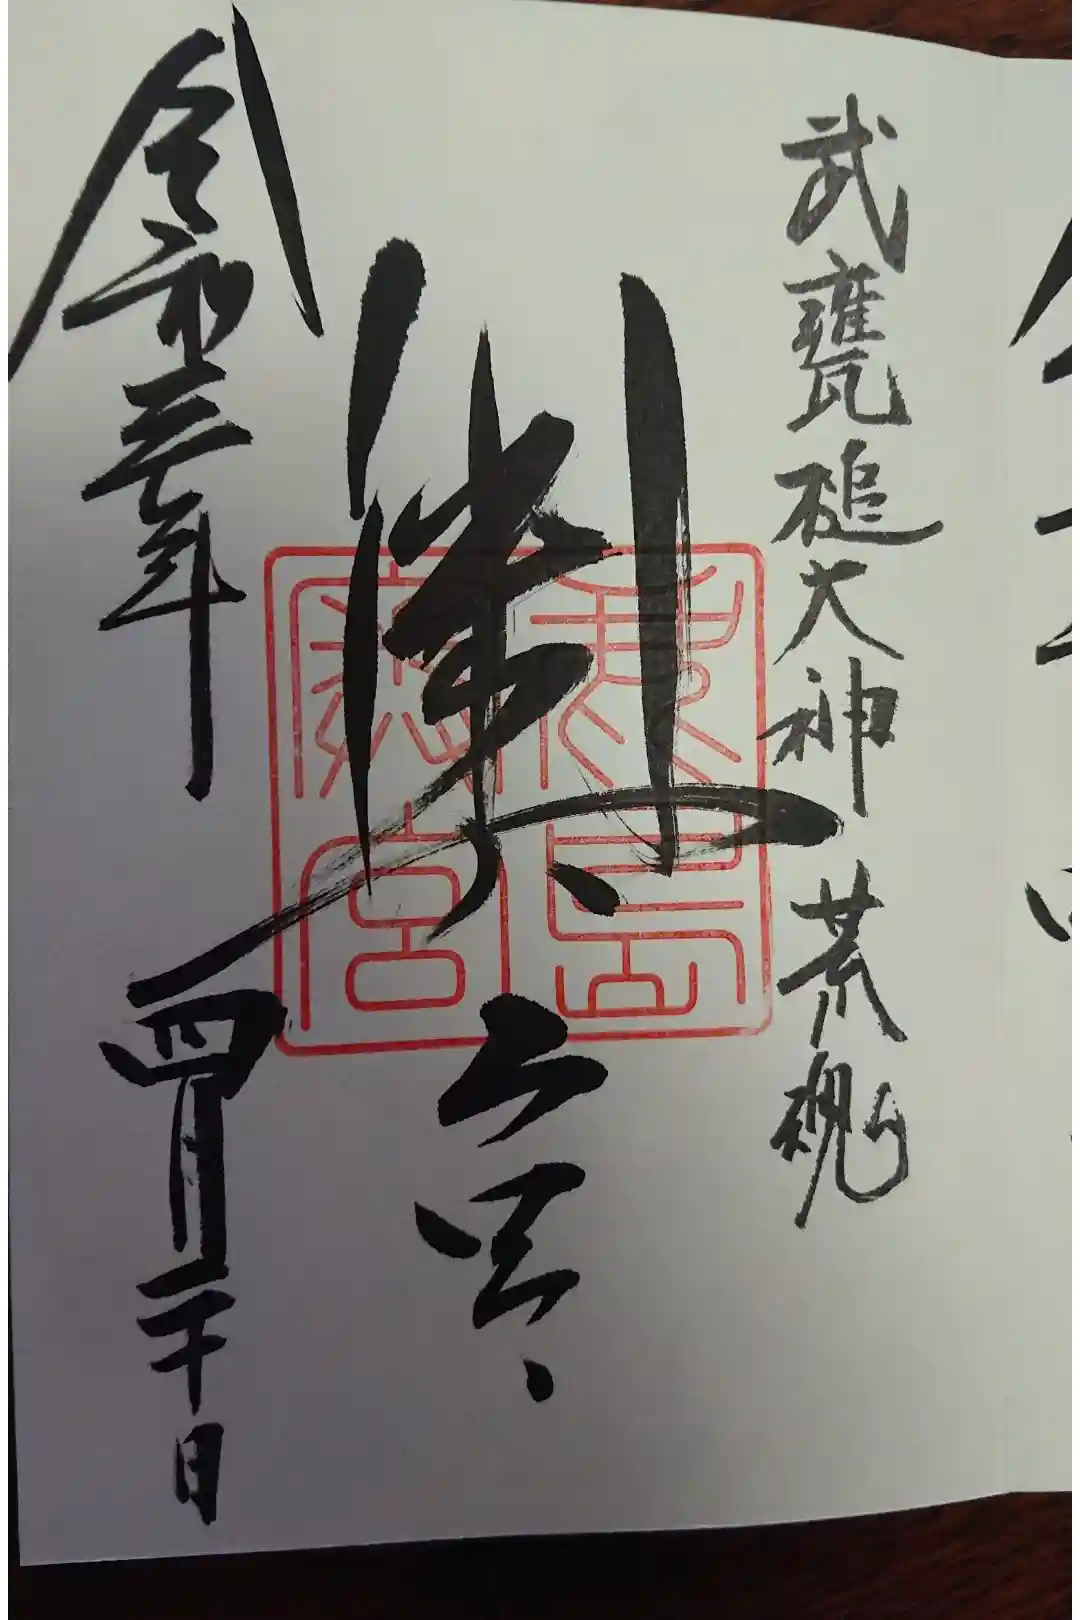 武甕槌大神荒魂
奥宮
鹿島
奥宮
令和三年四月二十日